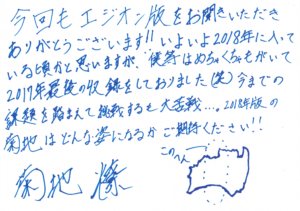 今回もエジオン版をお聞きいただき
ありがとうございます!! いよいよ2018年に入って
いる頃かと思いますが、僕等はめちゃくちゃもがいて
2017年最後の収録をしておりました(笑) 今までの
経験を踏まえて挑戦するも大苦戦…。2018年版の
菊地はどんな姿になるかご期待ください!!
このへん
菊地 燎